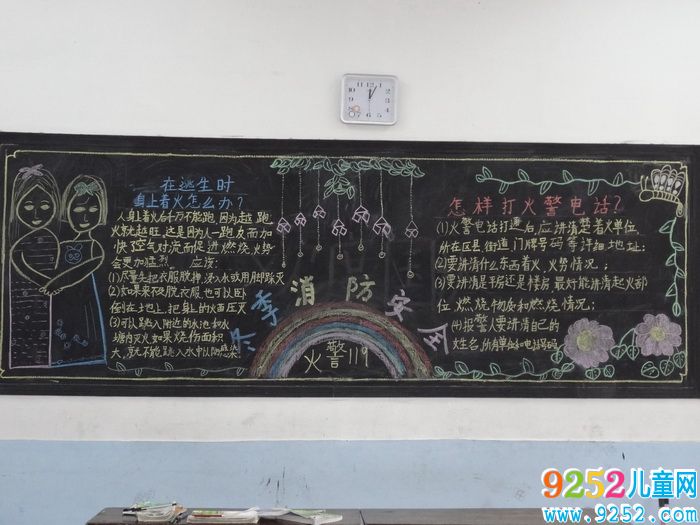 在逃生时
身上着火怎么办?
人身上着火后千万不能跑,因为越跑
火就越旺,这是因为人一跑反而加
快了空气对流而促进燃烧,火势
会更加猛烈 应该:
(1)尽量先把衣服脱掉,浸入水或用脚踩灭
(2)如果来不及脱衣服,也可以卧
倒在地上,把身上的火苗压灭
(3)可以跳入附近的水池和水
塘内灭火如果烧伤面积
大,就不能跳入水中以防感染
冬季消防安全
火警119
怎样打火警电话?
(1)火警电话打通后,应讲清楚着火单位,
所在区县街道,门牌号码等详细地址;
(2)要讲清什么东西着火,火势情况;
(3)要讲清是平房还是楼房,最好能讲清起火部
位,燃烧物质和燃烧情况;
(4)报警人要讲清自己的
姓名,所有单位和电话号码
9252儿童网
www.9252.com